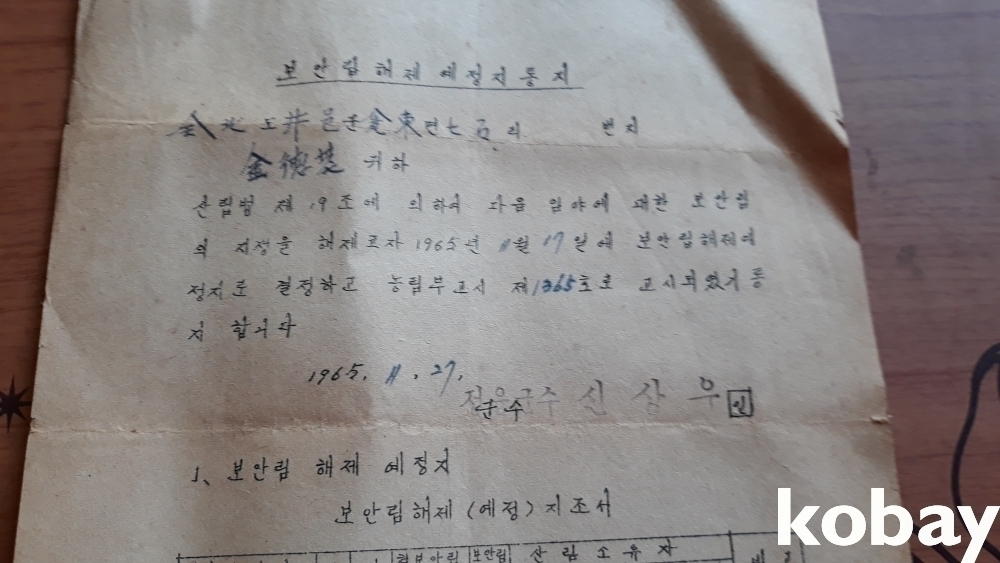 보안림해제예정지통지
全北도井邑군金東면七石리 번지
金德 귀하
산림법 제 19조에 의하여 다음 임야에 대한 보안림
의 지정을 해제코자 1965년 11월 17일에 보안림해제예
정지로 결정하고 농림부고시 제1365호로 고시되었기 통
지 합니다
1965. 11. 27.
정읍군수 신 상 우 인
군수
1、보안림 해제 예정지
보안림해제(예정)지조서
보안림 보안림 산림소유자 비
kobay